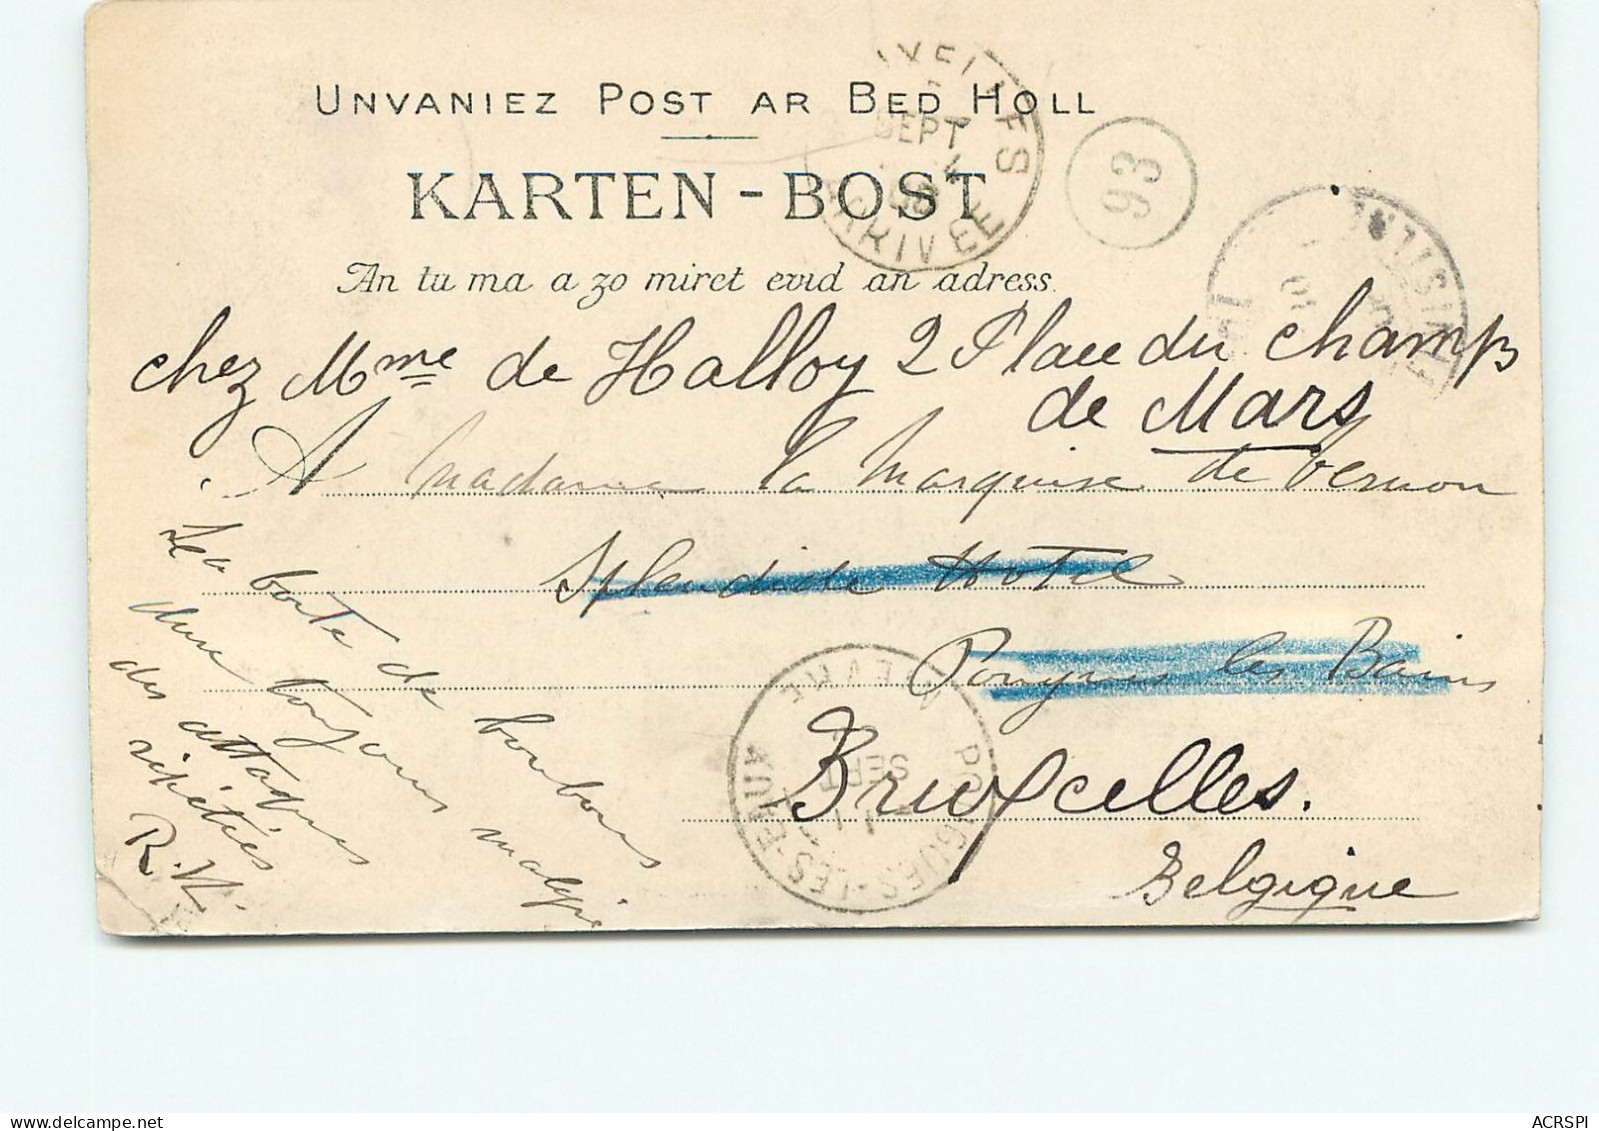 UNVANIEZ POST AR BED HOLL
KARTEN-BOST
An tu ma a zo miret evid an adress.
SEPT
ARRIVEE
93
chez Mme de Halloy 2 Place du champs
de Mars
A Madame la Marquise de Vernon
Splendide Hotel
Pougues les Bains
Bruxelles.
Belgique
La boite de bonbons
dure toujours malgré
des attaques
répétées
R.V.
POUGUES-LES-EAUX
NIEVRE
SEPT
ACRSPI